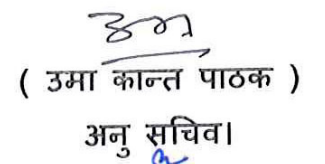 ( उमा कान्त पाठक )
अनु सचिव।